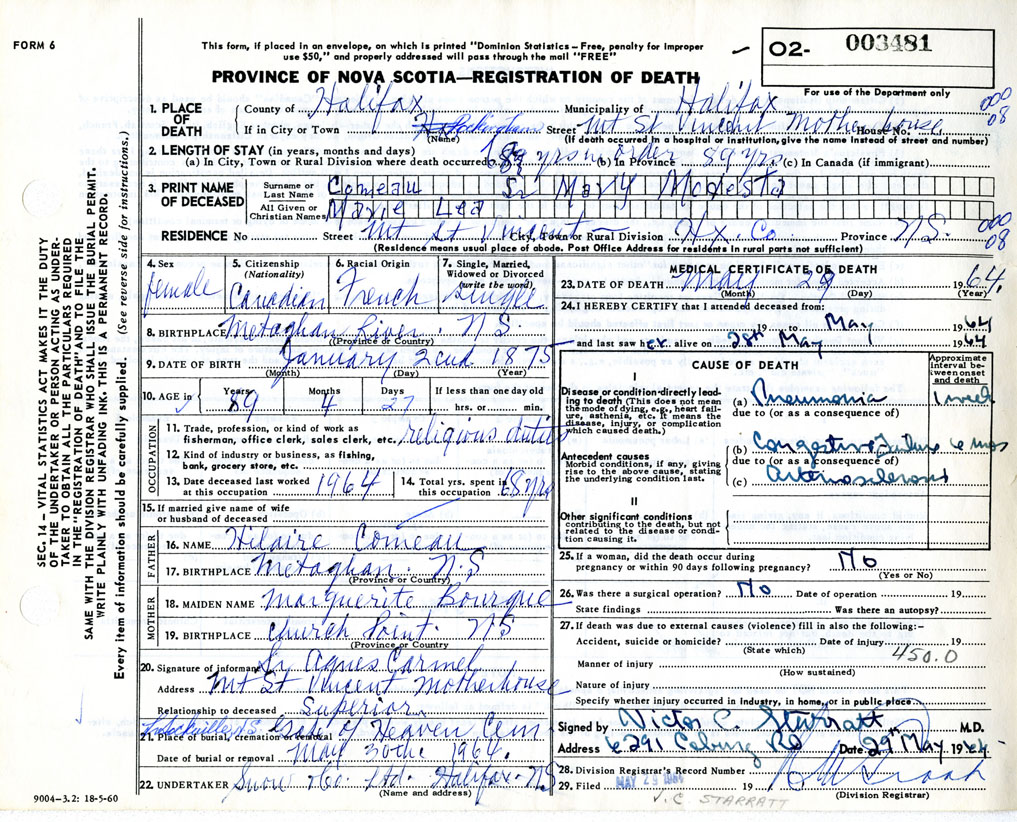 FORM 6
This form, if placed in an envelope, on which is printed "Dominion Statistics – Free, penalty for improper
use $50," and properly addressed will pass through the mail "FREE"
PROVINCE OF NOVA SCOTIA—REGISTRATION OF DEATH
O2- 003481
For use of the Department only
SEC. 14 – VITAL STATISTICS ACT MAKES IT THE DUTY
OF THE UNDERTAKER OR PERSON ACTING AS UNDER-
TAKER TO OBTAIN ALL THE PARTICULARS REQUIRED
IN THE "REGISTRATION OF DEATH" AND TO FILE THE
SAME WITH THE DIVISION REGISTRAR WHO SHALL ISSUE THE BURIAL PERMIT.
WRITE PLAINLY WITH UNFADING INK. THIS IS A PERMANENT RECORD.
Every item of information should be carefully supplied. (See reverse side for instructions.)
1. PLACE OF DEATH
County of Halifax Municipality of Halifax
000
08
If in City or Town Rockingham Street Mt St Vincent Motherhouse House No.
(Name) (If death occurred in a hospital or institution, give the name instead of street and number)
2. LENGTH OF STAY (in years, months and days)
(a) In City, Town or Rural Division where death occurred yrs in order (b) In Province 89 yrs (c) In Canada (if immigrant)
3. PRINT NAME OF DECEASED
Surname or Last Name Comeau Sr Mary Modesta
All Given or Christian Names Marie Lea
RESIDENCE No Street Mt St Vincent City, Town or Rural Division Hx. Co. Province N.S.
000
08
(Residence means usual place of abode. Post Office Address for residents in rural parts not sufficient)
4. Sex female
5. Citizenship (Nationality) Canadian
6. Racial Origin French
7. Single, Married, Widowed or Divorced (write the word) Single
8. BIRTHPLACE Metaghan River. N.S.
(Province or Country)
9. DATE OF BIRTH January 2cnd 1875
(Month) (Day) (Year)
10. AGE in Years 89 Months 4 Days 27 If less than one day old hrs. or min.
OCCUPATION
11. Trade, profession, or kind of work as fisherman, office clerk, sales clerk, etc. religious duties
12. Kind of industry or business, as fishing, bank, grocery store, etc.
13. Date deceased last worked at this occupation 1964
14. Total yrs. spent in this occupation 68 yrs
15. If married give name of wife or husband of deceased
FATHER
16. NAME Hilaire Comeau
17. BIRTHPLACE Metaghan. N.S
(Province or Country)
MOTHER
18. MAIDEN NAME Marguerite Bourque
19. BIRTHPLACE Church Point. NS
(Province or Country)
20. Signature of informant Sr Agnes Carmel
Address Mt St Vincent Motherhouse
Relationship to deceased Superior
21. Place of burial, cremation or removal Gate of Heaven Cem
Date of burial or removal May 30th 1964.
22. UNDERTAKER Snow & Co. Ltd. Halifax. NS
(Name and address)
9004-3.2: 18-5-60
MEDICAL CERTIFICATE OF DEATH
23. DATE OF DEATH May 29 1964.
(Month) (Day) (Year)
24. I HEREBY CERTIFY that I attended deceased from:
19 to May 1964
and last saw her alive on 28th May 1964
CAUSE OF DEATH
Approximate interval between onset and death
I
Disease or condition directly leading to death (This does not mean the mode of dying, e.g., heart failure, asthenia, etc. It means the disease, injury, or complication which caused death.)
(a) Pneumonia 1 week
due to (or as a consequence of)
Antecedent causes
Morbid conditions, if any, giving rise to the above cause, stating the underlying condition last.
(b) Congestive Failure 6 mos
due to (or as a consequence of)
(c) Arteriosclerosis
II
Other significant conditions
contributing to the death, but not related to the disease or condition causing it.
25. If a woman, did the death occur during pregnancy or within 90 days following pregnancy? No
(Yes or No)
26. Was there a surgical operation? No Date of operation 19
State findings Was there an autopsy?
27. If death was due to external causes (violence) fill in also the following:–
Accident, suicide or homicide? Date of injury 19
(State which) 450.0
Manner of injury
(How sustained)
Nature of injury
Specify whether injury occurred in industry, in home, or in public place
Signed by Victor C. Starratt M.D.
Address 6291 Coburg Rd Date 29th May 1964
28. Division Registrar's Record Number
29. Filed MAY 29 1964 19
(Division Registrar)
V. C. STARRATT